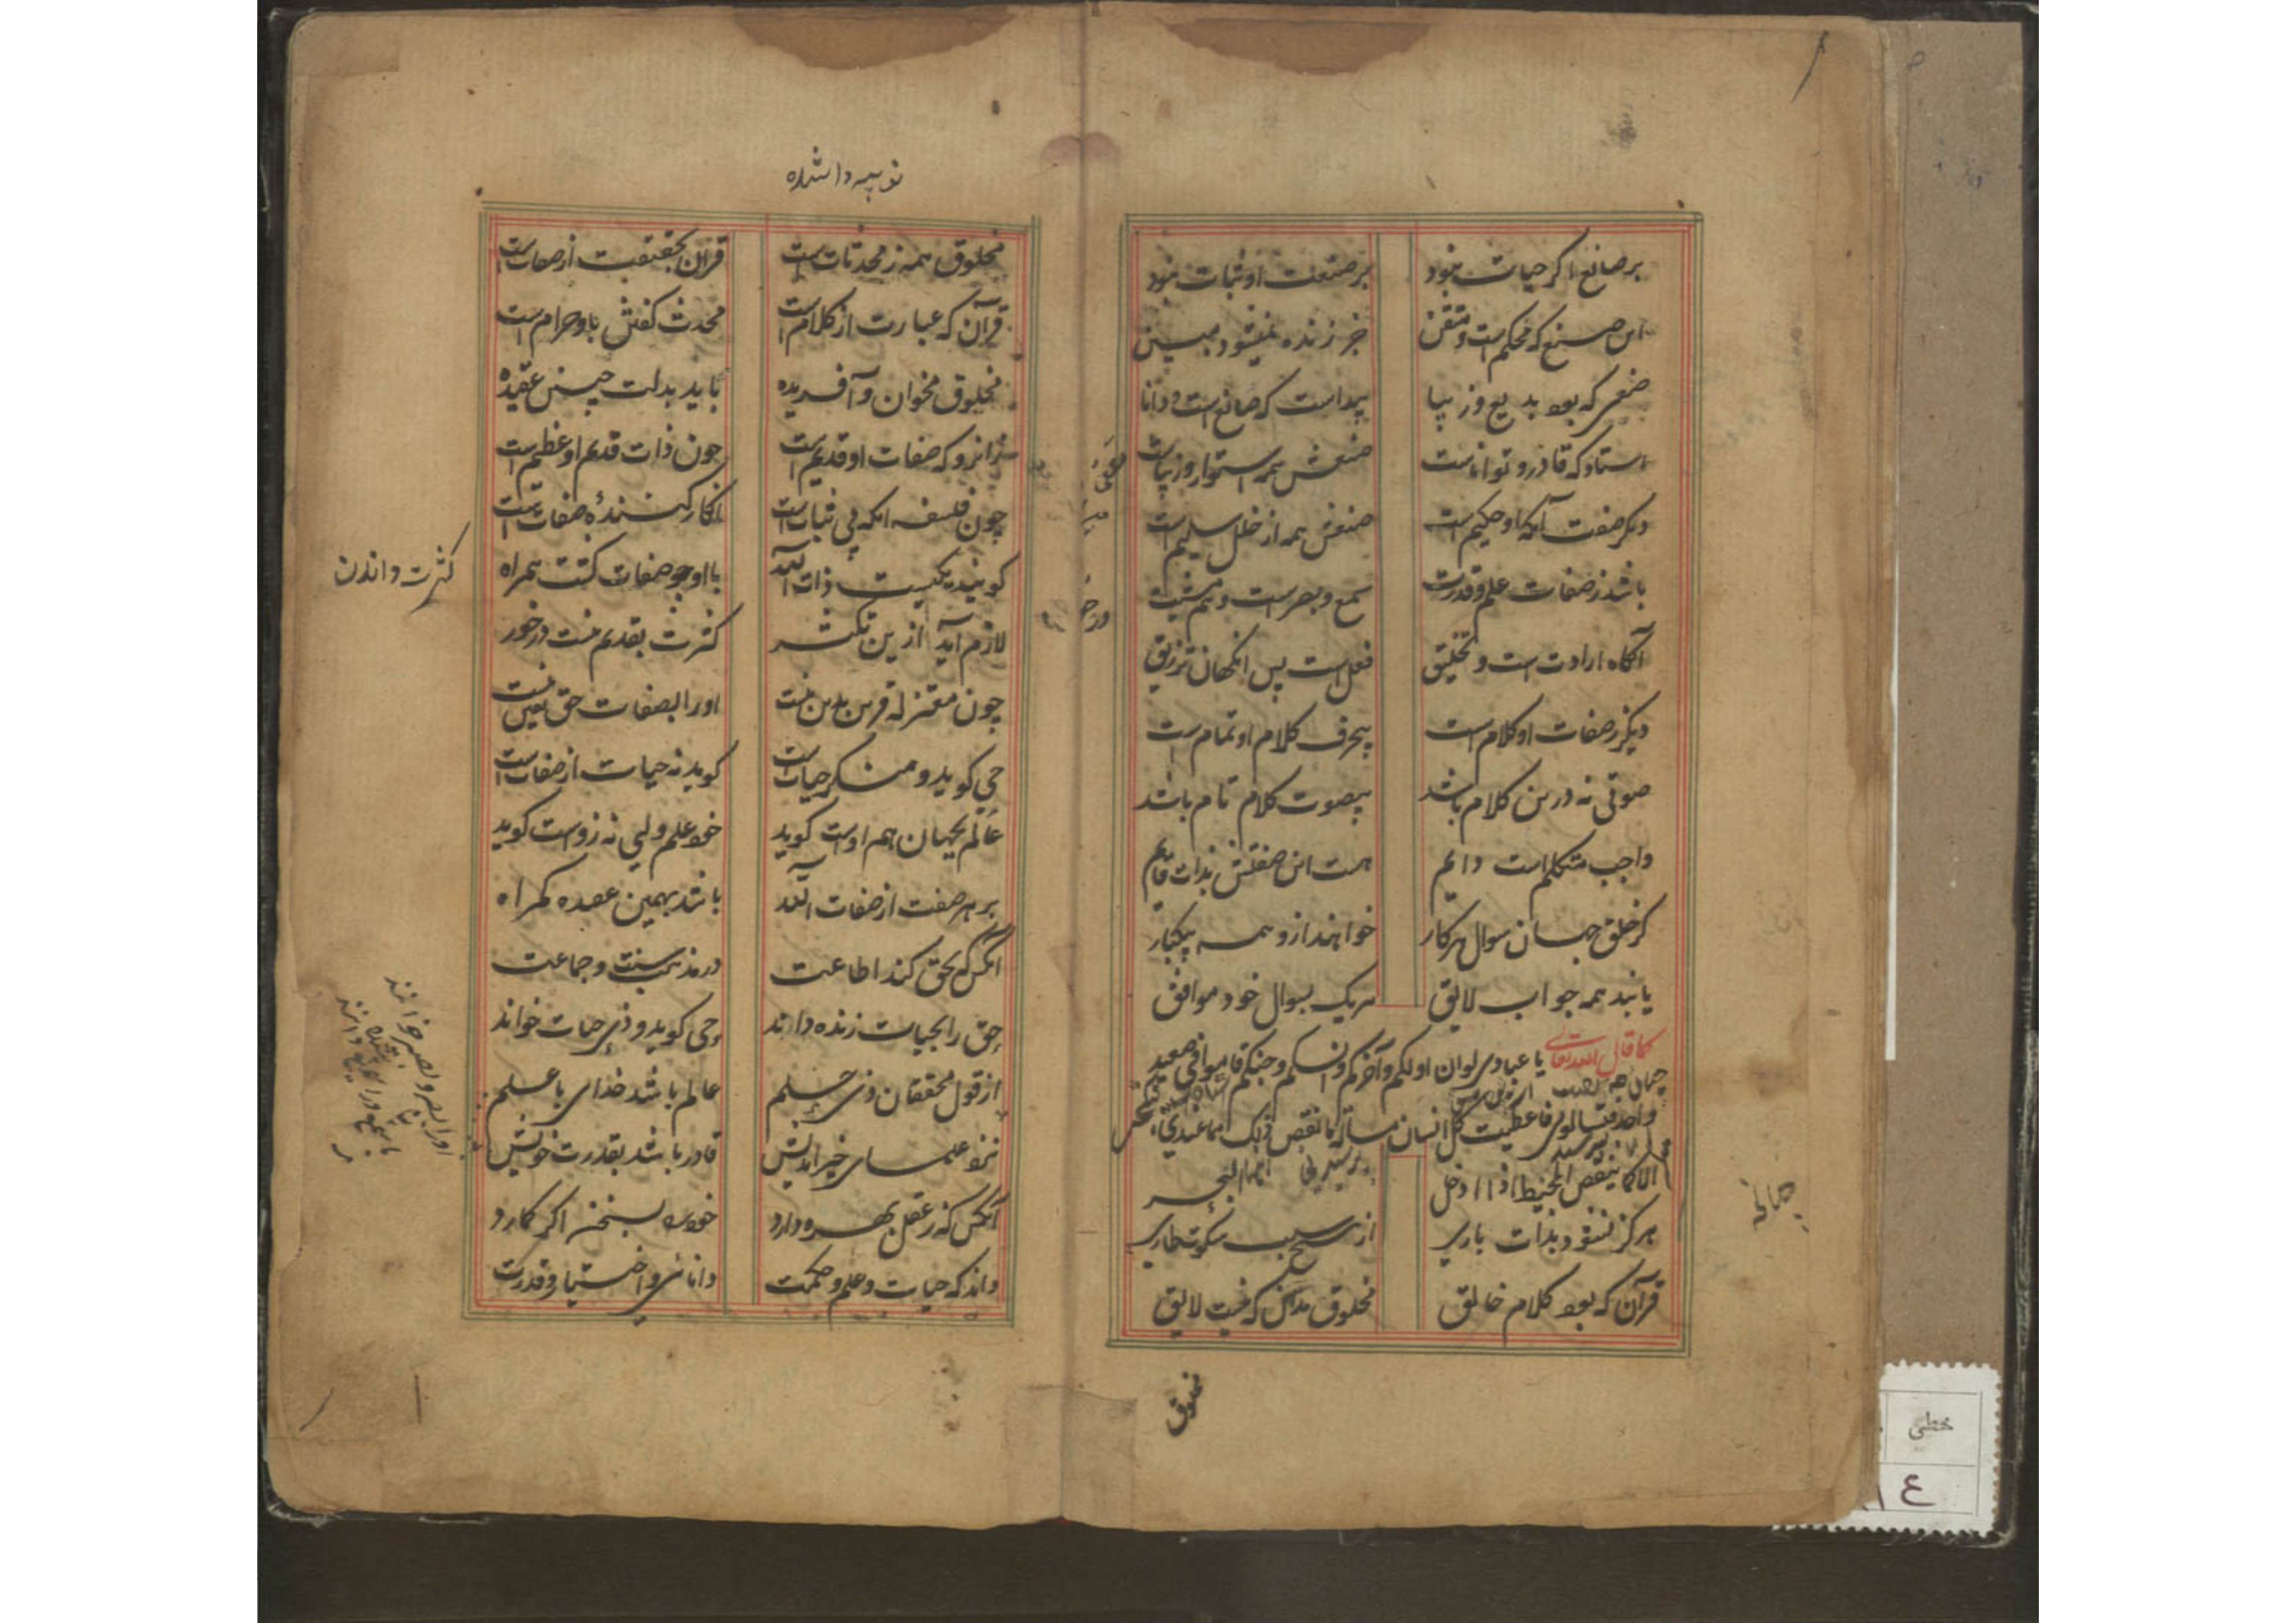 بر صانع اگر حیات نبود بر صنعت او ثبات نبود
این صنع که محکم است و متقن جز زنده نمیشود مبین
صنعی که بود بدیع و زیبا پیداست که صانع است و دانا
استاد که قادر و تواناست صنعش همه استوار و زیباست
دیگر صفت آنکه او حکیم است صنعش همه از خلل سلیم است
باشد ز صفات علم و قدرت سمع و بصر است و هم مشیت
آنگاه ارادت است و تخلیق فعل است پس انگهان ترزیق
دیگر ز صفات او کلام است بیحرف کلام او تمام است
صوتی نه درین کلام باشد بیصوت کلام تام باشد
واجب متکلم است دایم هست این صفتش بذات قایم
گر خلق جهان سوال هر کار خواهند ازو همه بیکبار
یابند همه جواب لایق هر یک بسوال خود موافق
کما قال الله تعالی یا عبادی لو ان اولکم و آخرکم و انسکم و جنکم قاموا فی صعید
واحد فسالونی فاعطیت کل انسان مسألة ما نقص ذلک مما عندی
الا کما ینقص المخیط اذا ادخل البحر
هرگز نشود بذات باری از سبب سکوت طاری
قرآن که بود کلام خالق مخلوق مدان که نیست لایق
مخلوق
مخلوق همه ز محدثات است قرآن بحقیقت از صفات است
قرآن که عبارت از کلام است محدث گفتش باو حرام است
مخلوق مخوان و آفریده باید بدلت چنین عقیده
زانرو که صفات او قدیم است چون ذات قدیم او عظیم است
چون فلسفه انکه بی ثبات است انکار کننده صفات است
گویند یکیست ذات الله با او چو صفات گشت همراه
لازم آید ازین تکثر کثرت بقدیم نیست درخور
چون معتزله قرین بدین نیست او را بصفات حق یقین نیست
حی گوید و منکر حیات است گوید نه حیات از صفات است
عالم بجهان هم اوست گوید خود علم ولی نه زوست گوید
بر هر صفت از صفات الله باشد بهمین عقیده گمراه
آنکس که بحق کند اطاعت در مذهب سنت و جماعت
حق را بحیات زنده داند حی گوید و ذی حیات خواند
از قول محققان ذی حلم عالم باشد خدای با علم
نزد علمای خیر اندیش قادر باشد بقدرت خویش
آنکس که ز عقل بهره دارد خود را بسخن اگر گمارد
داند که حیات و علم و حکمت دانائی و اختیار و قدرت
کثرت داندن
خطی
٤